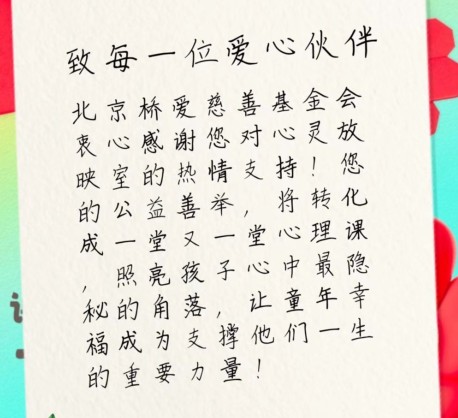 致每一位爱心伙伴
北京桥爱慈善基金会
衷心感谢您对心灵放
映室的热情支持！您
的公益善举，将转化
成一堂又一堂心理课
，照亮孩子心中最隐
秘的角落，让童年幸
福成为支撑他们一生
的重要力量！